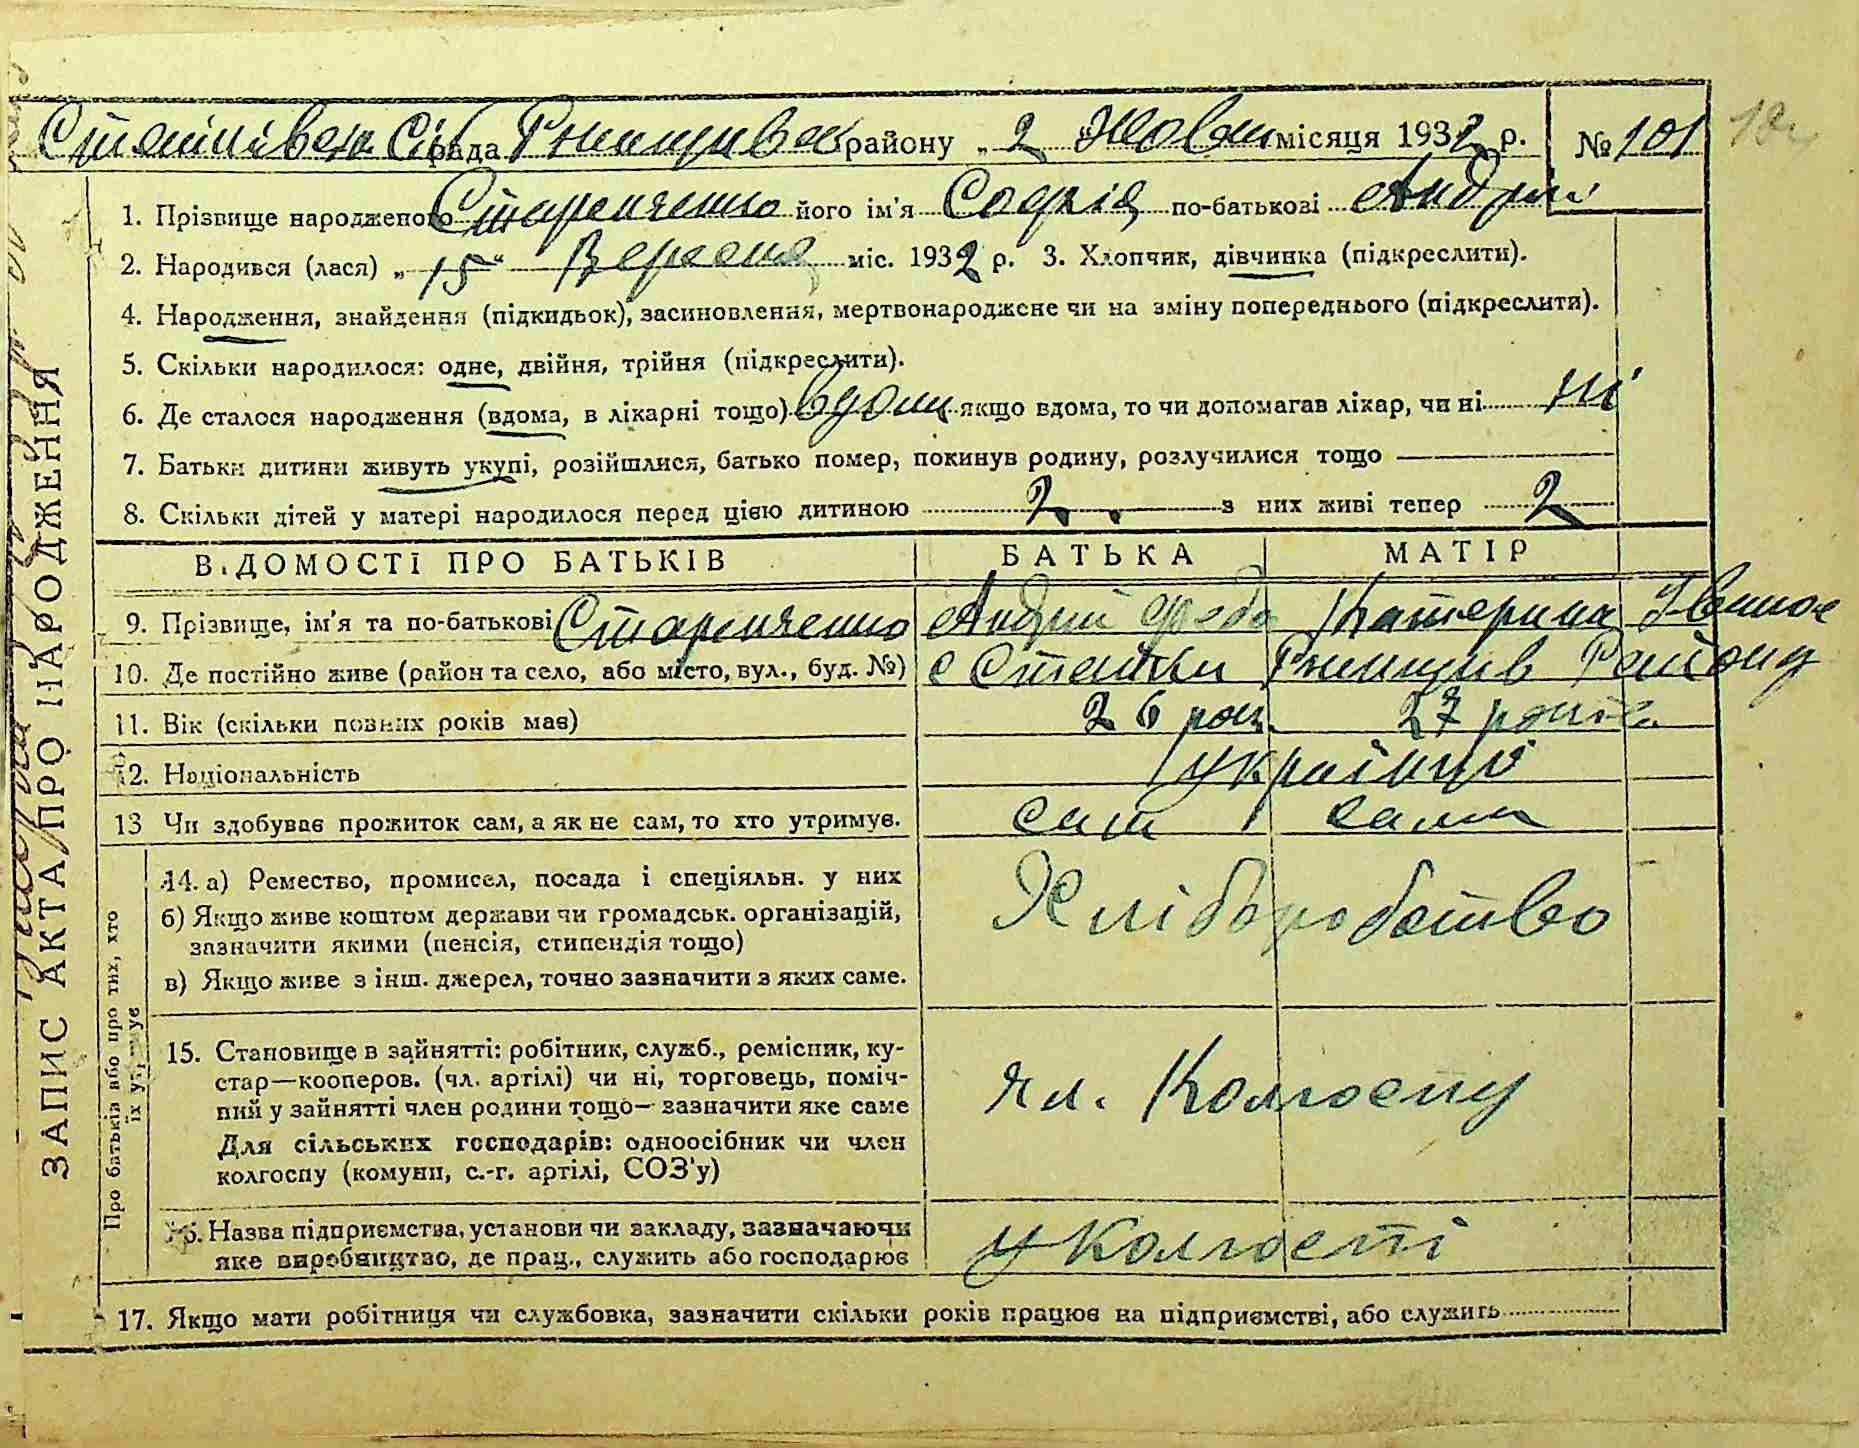 Стайківська Сільрада Ржищівськ району „ 2 " Жовтн місяця 1932 р. № 101
1. Прізвище народженого Старенченко його ім'я Софія по-батькові Андрії
2. Народився (лася) „ 15 " Вересня міс. 1932 р. 3. Хлопчик, дівчинка (підкреслити).
4. Народження, знайдення (підкидьок), засиновлення, мертвонароджене чи на зміну попереднього (підкреслити).
5. Скільки народилося: одне, двійня, трійня (підкреслити).
6. Де сталося народження (вдома, в лікарні тощо) вдома якщо вдома, то чи допомагав лікар, чи ні ні
7. Батьки дитини живуть укупі, розійшлися, батько помер, покинув родину, розлучилися тощо
8. Скільки дітей у матері народилося перед цією дитиною 2. з них живі тепер 2
ВІДОМОСТІ ПРО БАТЬКІВ БАТЬКА МАТІР
9. Прізвище, ім'я та по-батькові Старенченко Андрій Федо Катерина Іванов
10. Де постійно живе (район та село, або місто, вул., буд. №) с Стайки Ржищів Району
11. Вік (скільки повних років має) 26 рок. 27 років.
12. Національність українці
13 Чи здобуває прожиток сам, а як не сам, то хто утримує. сам сама
14. а) Ремество, промисел, посада і спеціяльн. у них Хліборобство
б) Якщо живе коштом держави чи громадськ. організацій,
зазначити якими (пенсія, стипендія тощо)
в) Якщо живе з інш. джерел, точно зазначити з яких саме.
15. Становище в зайнятті: робітник, служб., ремісник, ку-
стар—кооперов. (чл. артілі) чи ні, торговець, поміч-
ний у зайнятті член родини тощо— зазначити яке саме чл. Колгоспу
Для сільських господарів: одноосібник чи член
колгоспу (комуни, с.-г. артілі, СОЗ'у)
16. Назва підприємства, установи чи закладу, зазначаючи
яке виробництво, де прац., служить або господарює у Колгоспі
17. Якщо мати робітниця чи службовка, зазначити скільки років працює на підприємстві, або служить
ЗАПИС АКТА ПРО НАРОДЖЕННЯ
Про батьків або про тих, хто
їх утримує